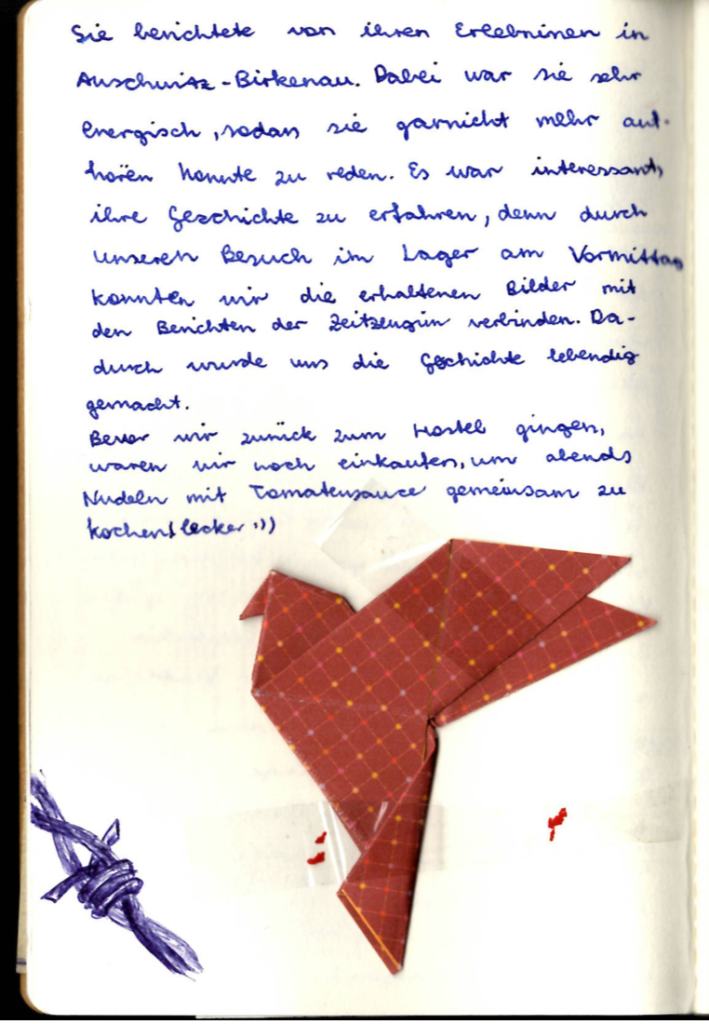 Sie berichtete von ihren Erlebnissen in
Auschwitz-Birkenau. Dabei war sie sehr
energisch, sodass sie garnicht mehr auf-
hören konnte zu reden. Es war interessant,
ihre Geschichte zu erfahren, denn durch
unseren Besuch im Lager am Vormittag
konnten wir die erhaltenen Bilder mit
den Berichten der Zeitzeugin verbinden. Da-
durch wurde uns die Geschichte lebendig
gemacht.
Bevor wir zurück zum Hostel gingen,
waren wir noch einkaufen, um abends
Nudeln mit Tomatensauce gemeinsam zu
kochen! lecker :))